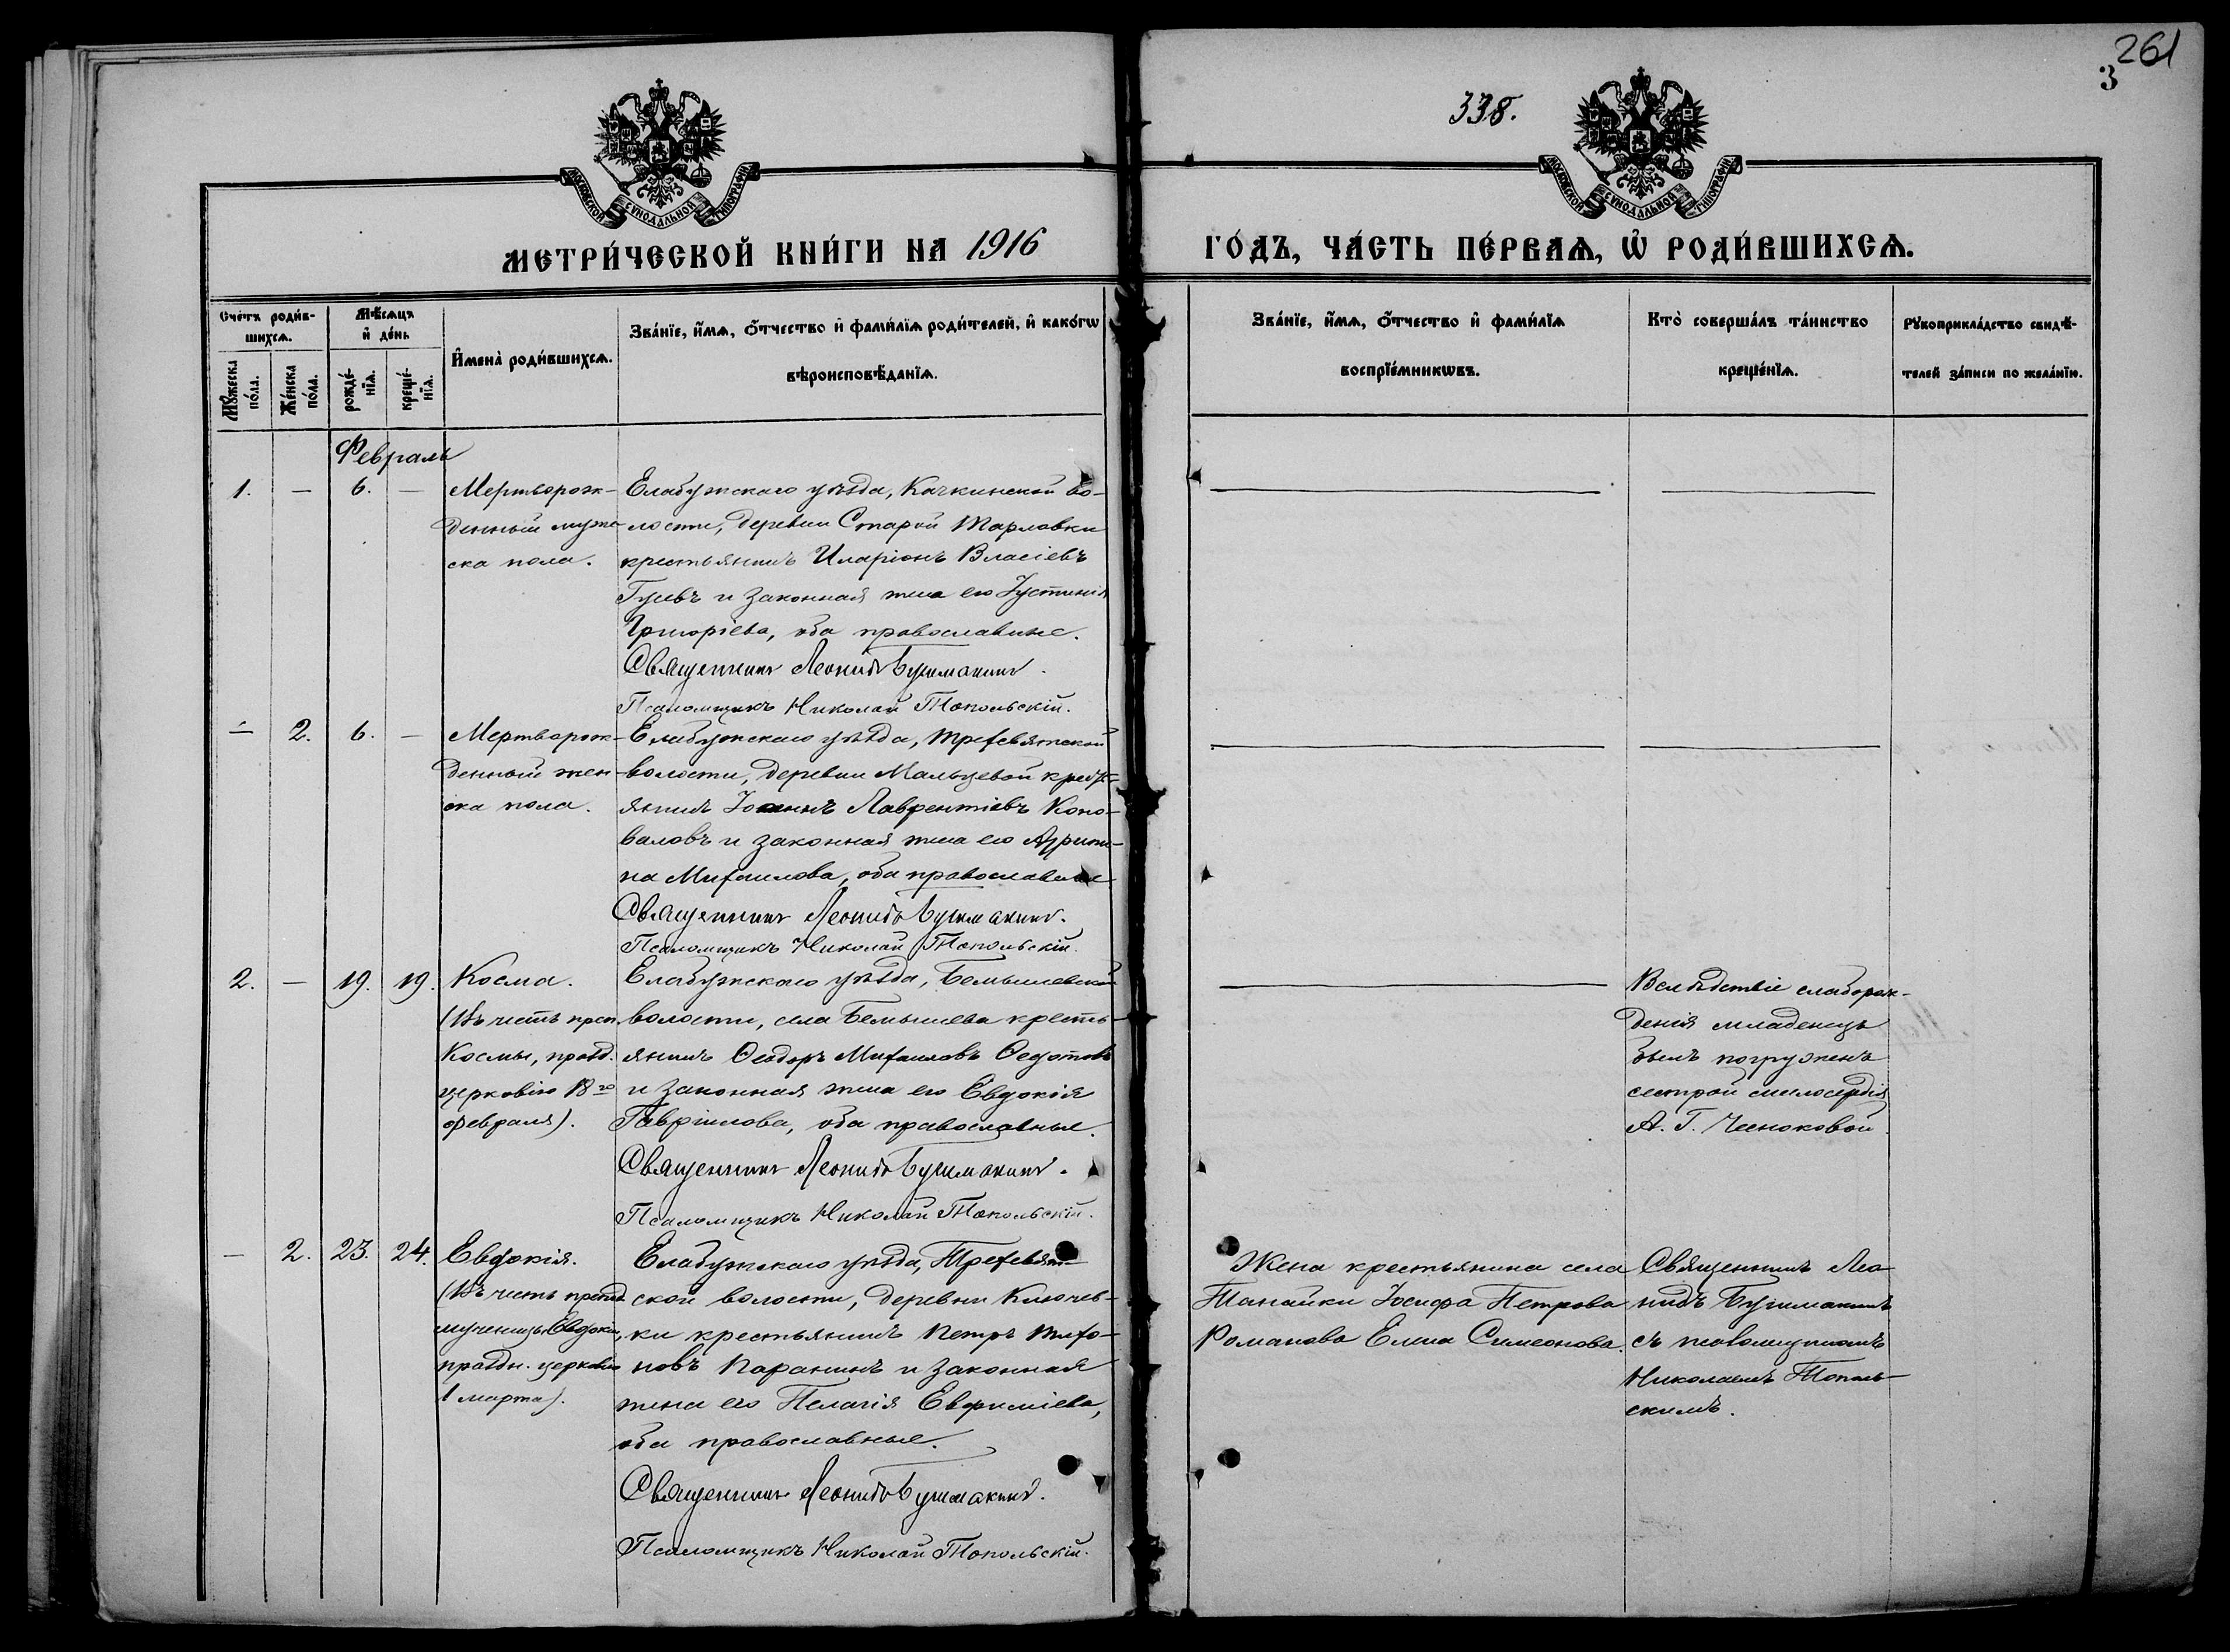 261
3
338.
МОСКОВСКОЙ СѴНОДАЛЬНОЙ ТИПОГРАФІИ
МОСКОВСКОЙ СѴНОДАЛЬНОЙ ТИПОГРАФІИ
МЕТРИ́ЧЕСКОЙ КНИ́ГИ НА 1916
ГО́ДЪ, ЧА́СТЬ ПЕ́РВАѦ, Ѡ҆ РОДИ́ВШИХСѦ.
Сче́тъ роди́в-
шихсѧ.
Мꙋ́жеска по́ла.
Же́нска по́ла.
Мѣ́сѧцъ
и҆ де́нь
рожде́-
нїѧ.
креще́-
нїѧ.
И҆мена̀ роди́вшихсѧ.
Зва́нїе, и҆́мѧ, ѻ҆́тчество и҆ фами́лїѧ роди́телей, и҆ како́гѡ
вѣроисповѣ́данїѧ.
Зва́нїе, и҆́мѧ, ѻ҆́тчество и҆ фами́лїѧ
воспрїе́мникѡвъ.
Кто̀ соверша́лъ та́инство
креще́нїѧ.
Рꙋкоприкла́дство свидѣ́-
телей за́писи по жела́нїю.
Февраль
1. — 6. —
Мертворож-
денный муже-
ска пола.
Елабужскаго уѣзда, Качкинской во-
лости, деревни Старой Тарловки
крестьянинъ Иларіонъ Власіевъ
Гусевъ и законная жена его Іустинія
Григоріева, оба православные.
Священникъ Леонидъ Бушмакинъ.
Псаломщикъ Николай Топольскій.
— 2. 6. —
Мертворож-
денный жен-
ска пола.
Елабужскаго уѣзда, Трехсвятской
волости, деревни Мальцевой кресть-
янинъ Іоаннъ Лаврентіевъ Коно-
валовъ и законная жена его Агрипи-
на Михаилова, оба православные
Священникъ Леонидъ Бушмакинъ.
Псаломщикъ Николай Топольскій.
2. — 19. 19.
Косма.
(Въ честь преп.
Космы, празд.
церковію 18го
февраля).
Елабужскаго уѣзда, Бемышевской
волости, села Бемышева кресть-
янинъ Ѳеодоръ Михаиловъ Ѳедотовъ
и законная жена его Евдокія
Гавріилова, оба православные.
Священникъ Леонидъ Бушмакинъ.
Псаломщикъ Николай Топольскій.
Вслѣдствіе слаборож-
денія младенецъ
былъ погруженъ
сестрой милосердія
А. Г. Чесноковой.
— 2. 23. 24.
Евдокія.
(Въ честь препод.
мученицы Евдокіи,
праздн. церковію
1 марта).
Елабужскаго уѣзда, Трехсвят-
ской волости, деревни Ключев-
ки крестьянинъ Петръ Тихо-
новъ Паранинъ и законная
жена его Пелагія Евфиміева,
оба православные.
Священникъ Леонидъ Бушмакинъ.
Псаломщикъ Николай Топольскій.
Жена крестьянина села
Танайки Іосифа Петрова
Романова Елена Симеонова.
Священникъ Лео-
нидъ Бушмакинъ
съ псаломщикомъ
Николаемъ Тополь-
скимъ.